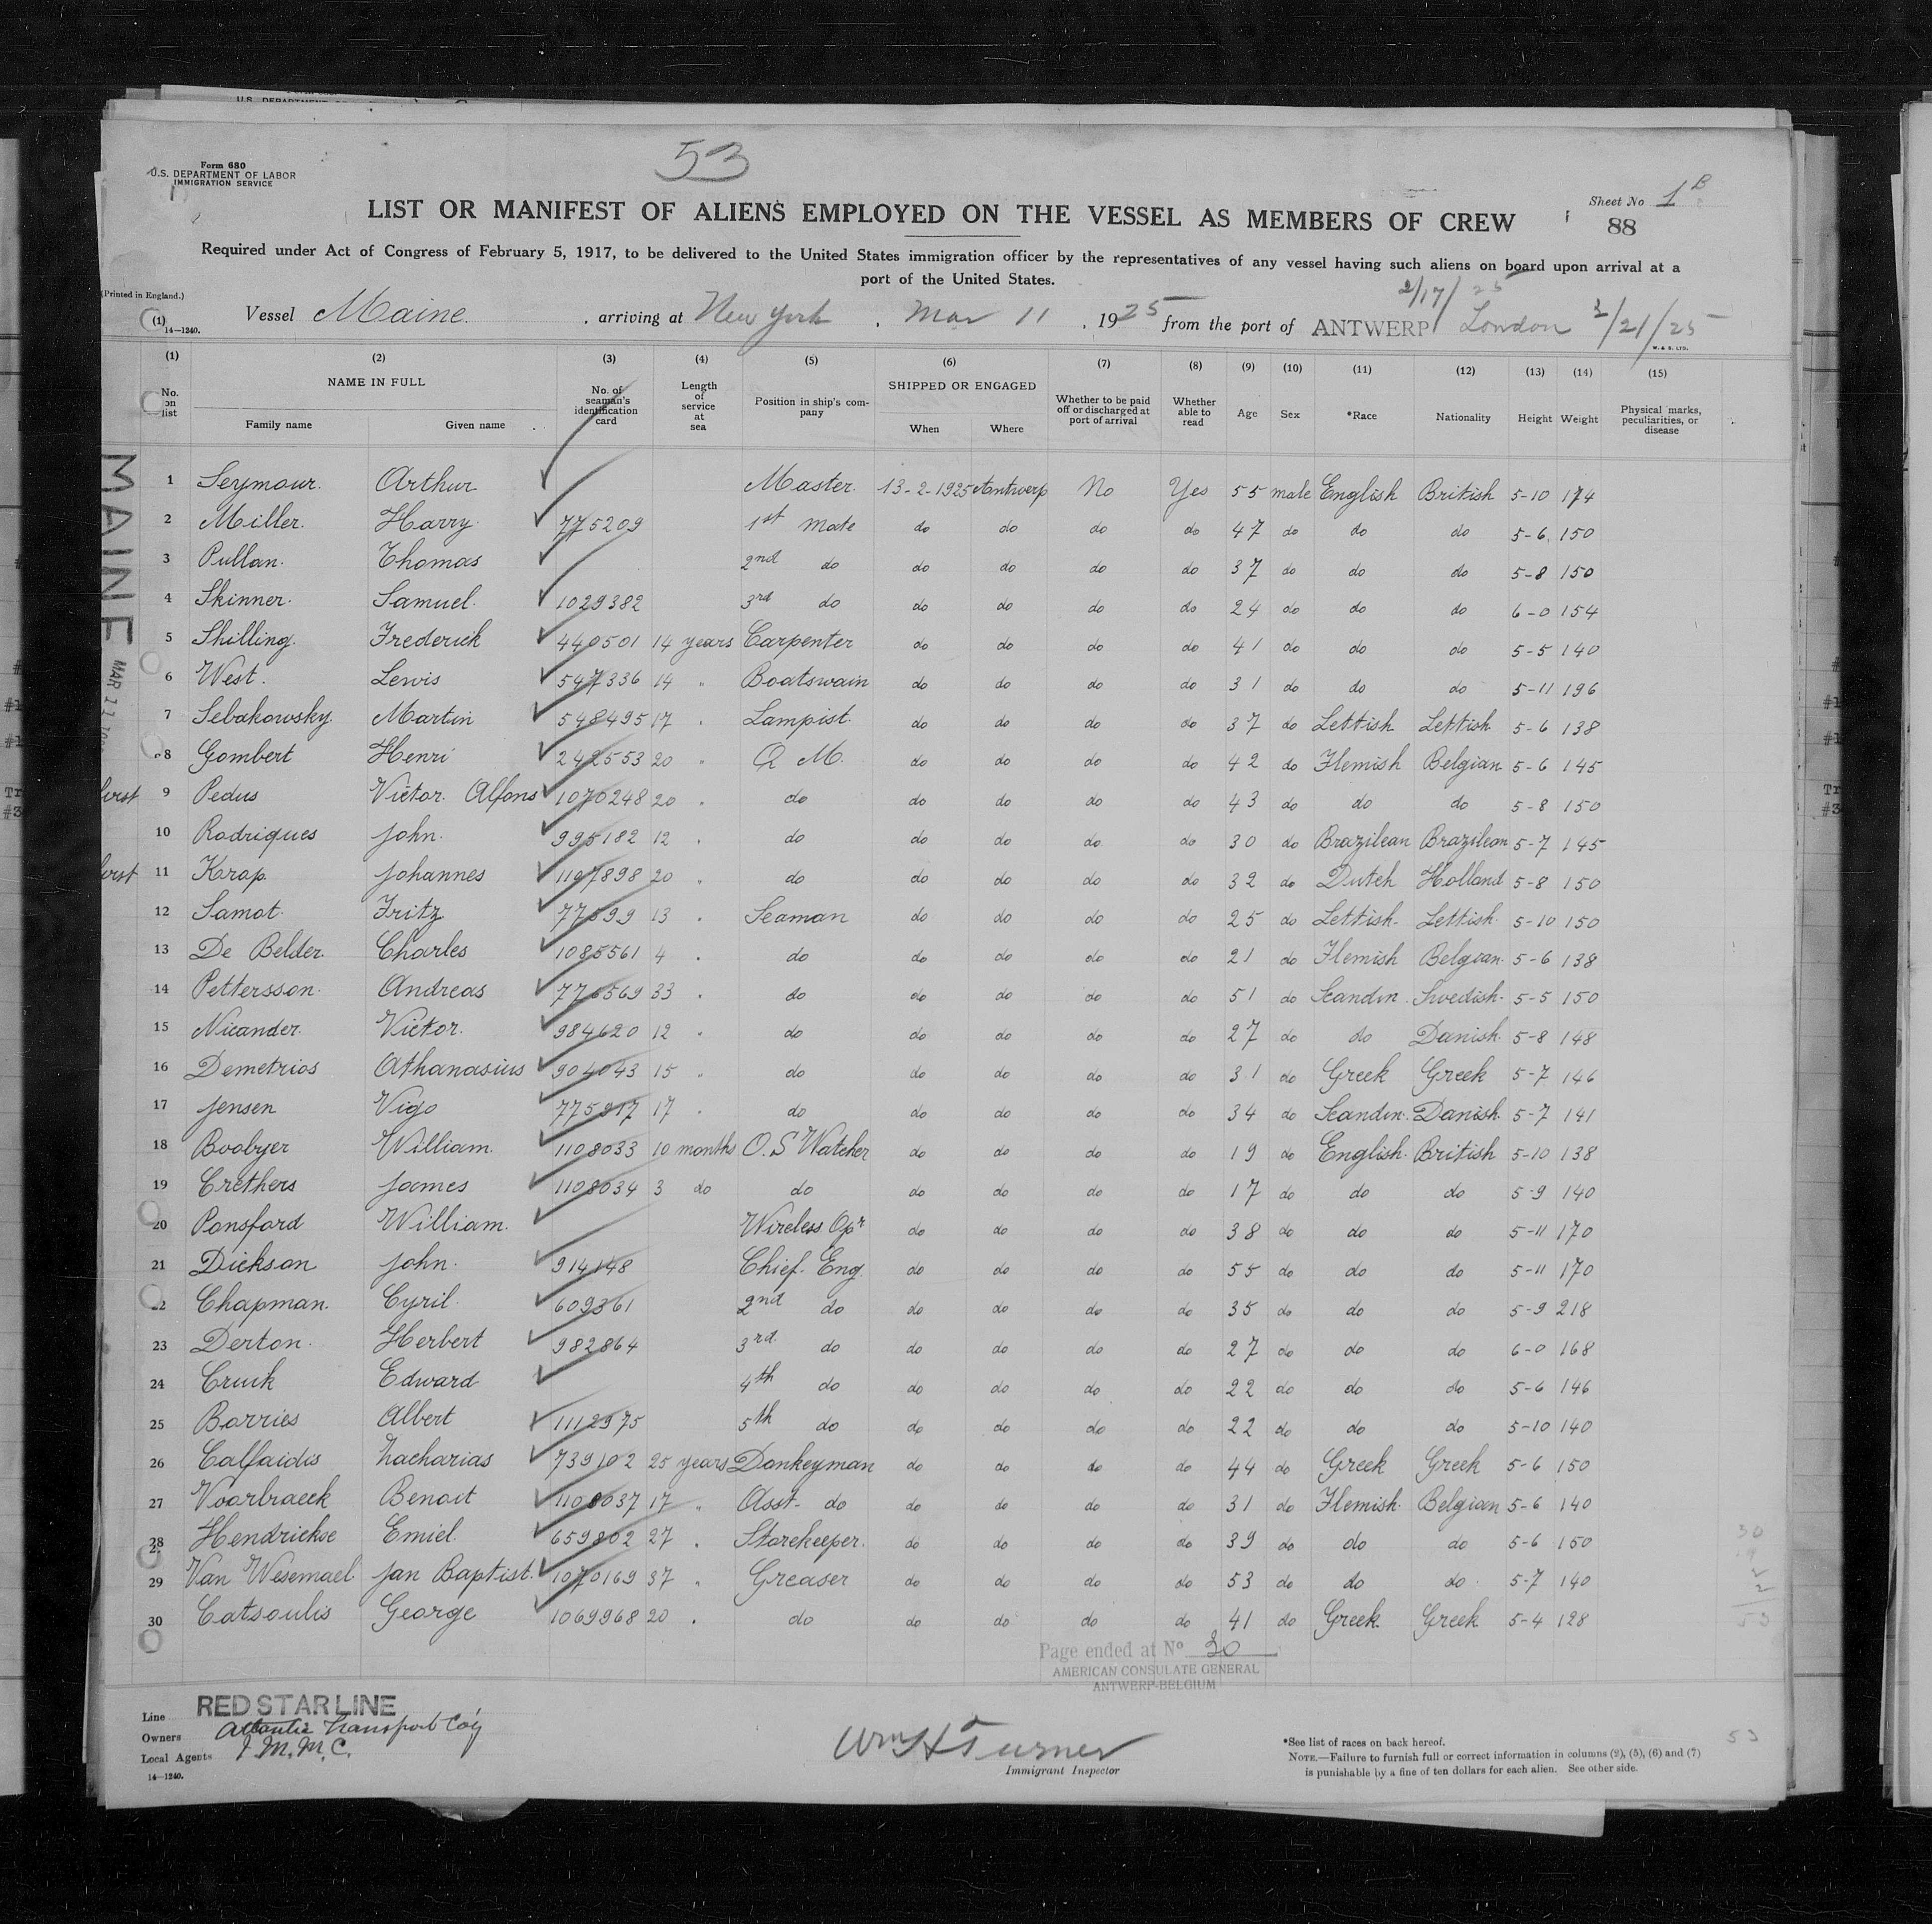 53
Form 680
U.S. DEPARTMENT OF LABOR
IMMIGRATION SERVICE
Sheet No 1 B
88
LIST OR MANIFEST OF ALIENS EMPLOYED ON THE VESSEL AS MEMBERS OF CREW
Required under Act of Congress of February 5, 1917, to be delivered to the United States immigration officer by the representatives of any vessel having such aliens on board upon arrival at a
port of the United States.
(Printed in England.)
2/17/25
(1) 14—1240. Vessel Maine. , arriving at New York , Mar 11 , 1925 from the port of ANTWERP London 2/21/25
W. & S. LTD.
(1) (2) (3) (4) (5) (6) (7) (8) (9) (10) (11) (12) (13) (14) (15)
No. on list NAME IN FULL Family name Given name No. of seaman's identification card Length of service at sea Position in ship's company SHIPPED OR ENGAGED When Where Whether to be paid off or discharged at port of arrival Whether able to read Age Sex *Race Nationality Height Weight Physical marks, peculiarities, or disease
MAINE
MAR 11
1 Seymour. Arthur Master. 13-2-1925 Antwerp No Yes 55 male English British 5-10 174
2 Miller. Harry. 775209 1st Mate do do do do 47 do do do 5-6 150
3 Pullan. Thomas 2nd do do do do do 37 do do do 5-8 150
4 Skinner. Samuel. 1029382 3rd do do do do do 24 do do do 6-0 154
5 Shilling. Frederick 440501 14 years Carpenter do do do do 41 do do do 5-5 140
6 West. Lewis 547336 14 " Boatswain do do do do 31 do do do 5-11 196
7 Sebakowsky. Martin 548495 17 " Lampist. do do do do 37 do Lettish Lettish 5-6 138
8 Gombert Henri 242553 20 " Q M. do do do do 42 do Flemish Belgian 5-6 145
9 Pedus Victor Alfons 1070248 20 " do do do do do 43 do do do 5-8 150
10 Rodriques John. 995182 12 " do do do do do 30 do Brazilean Brazilean 5-7 145
11 Krap. Johannes 1197898 20 " do do do do do 32 do Dutch Holland 5-8 150
12 Samot. Fritz 77599 13 " Seaman do do do do 25 do Lettish Lettish 5-10 150
13 De Belder. Charles 1085561 4 " do do do do do 21 do Flemish Belgian 5-6 138
14 Pettersson. Andreas 776569 33 " do do do do do 51 do Scandin. Swedish 5-5 150
15 Nicander. Victor. 984620 12 " do do do do do 27 do do Danish. 5-8 148
16 Demetrios Athanasius 904043 15 " do do do do do 31 do Greek Greek 5-7 146
17 Jensen Vigo 775917 17 " do do do do do 34 do Scandin. Danish. 5-7 141
18 Boobyer William. 1108033 10 months O.S Watcher do do do do 19 do English. British 5-10 138
19 Crethers James 1108034 3 do do do do do do 17 do do do 5-9 140
20 Ponsford William. Wireless Opr do do do do 38 do do do 5-11 170
21 Dickson John. 914148 Chief. Eng. do do do do 55 do do do 5-11 170
22 Chapman. Cyril. 609361 2nd do do do do do 35 do do do 5-9 218
23 Derton. Herbert 982864 3rd. do do do do do 27 do do do 6-0 168
24 Cruik Edward 4th do do do do do 22 do do do 5-6 146
25 Barries Albert 1112975 5th do do do do do 22 do do do 5-10 140
26 Calfaidis Zacharias 739102 25 years Donkeyman do do do do 44 do Greek Greek 5-6 150
27 Voorbraeck Benoit 1108037 17 " Asst. do do do do do 31 do Flemish Belgian 5-6 140
28 Hendrickse Emiel. 659802 27 " Storekeeper. do do do do 39 do do do 5-6 150
29 Van Wesemael Jan Baptist. 1070169 37 " Greaser do do do do 53 do do do 5-7 140
30 Catsoulis George 1069968 20 " do do do do do 41 do Greek. Greek 5-4 128
Page ended at No 30
AMERICAN CONSULATE GENERAL
ANTWERP-BELGIUM
Line RED STAR LINE
Owners Atlantic Transport Coy
Local Agents I.M.M.C.
14—1240.
Wm H Turner
Immigrant Inspector
53
*See list of races on back hereof.
NOTE.—Failure to furnish full or correct information in columns (2), (5), (6) and (7)
is punishable by a fine of ten dollars for each alien. See other side.